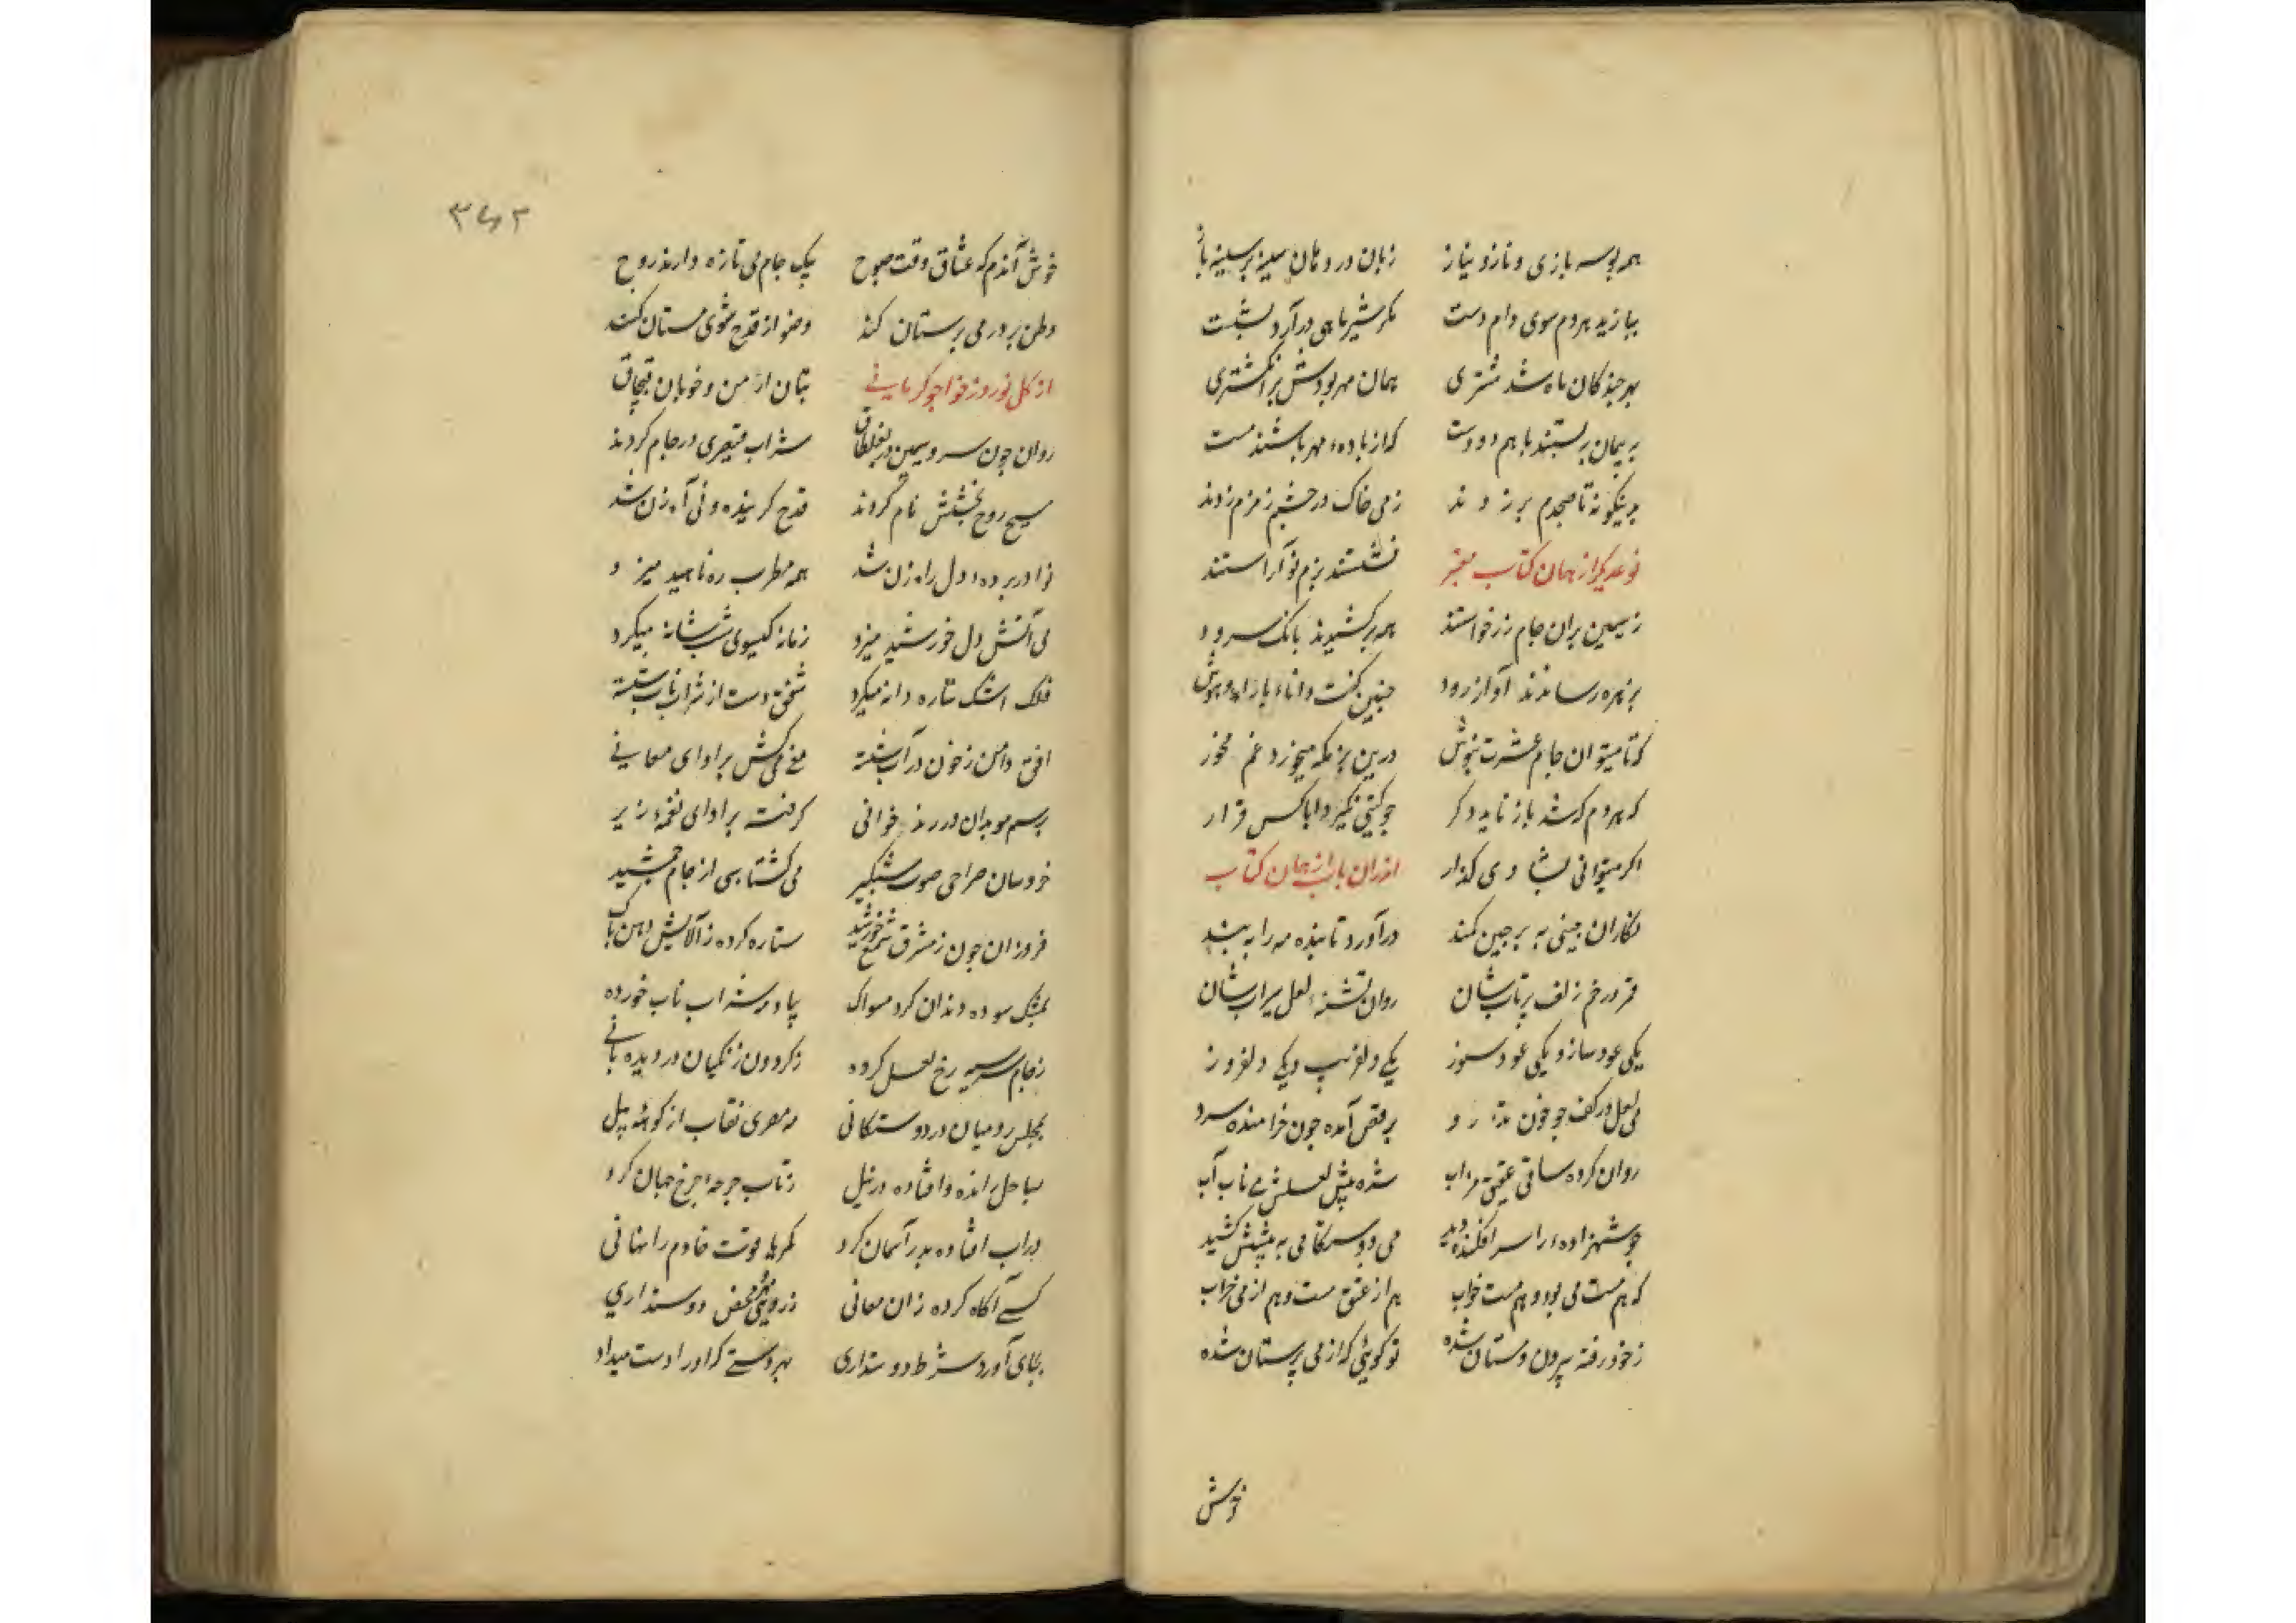 همه بوسه بازی و ناز و نیاز زبان در دهان سینه بر سینه باز
بیازید هر دم سوی دام دست مگر شیر ماهی درآرد بشست
هر چند کان ماه شد مشتری همان مهر بودش بر انگشتری
به پیمان ببستند با هم دو دست که از باده مهر باشند مست
بدینگونه تا صبحدم بر زدند ز می خاک در چشم زمزم زدند
نوعدیگر از همان کتاب معتبر نشستند بزم نو آراستند
ز سیمین بران جام زر خواستند همه برکشیدند بانک سرود
بزهره رساندند آواز رود چنین گفت دانا
که تا میتوان جام عشرت بنوش درین بزمگه میخور و غم مخور
که هر دم که شد باز ناید دگر چو گیتی نگیرد ابا کس قرار
اگر میتوانی بشادی گذار از همان کتاب
نگاران چینی به پرچین کمند درآورد تابنده مه را به بند
قمر در خم زلف پرتاب شان روان تشنه لعل سیراب شان
یکی عود ساز و یکی عود سوز یکی دلفریب و یکی دلفروز
می لعل در کف چو خون تذرو برقص آمده چون خرامنده سرو
روان کرده ساقی عقیق مذاب شده پیش لعلش می ناب آب
چو شهزاده را سر افکنده دید می دوستکامی به پیشش کشید
که هم مست می بود و هم مست خواب هم از عشق مست و هم از می خراب
ز خود رفته بیرون و مستان شده تو گوئی که از می پرستان شده
خوش
۳۶۲
خوش آندم که عشاق وقت صبوح بیک جام می تازه دارند روح
وطن بر در می پرستان کنند وضو از قدح مستان کنند
از گل نوروز خواجو کرمانی بتان ارمن و خوبان قبچاق
روان چون سرو سیمین در بغلطاق شراب قیصری در جام کردند
مسیح روح بخشش نام کردند قدح گرینده و نی آه زن شد
نوا در پرده دل راه زن شد همه مطرب ره ناهید میزد
می آتش دل خورشید میزد زمانه گیسوی شب شانه میکرد
فلک اشک ستاره دانه میکرد شفق دست از شراب ناب شسته
افق دامن ز خون در آب شسته مغ می کش بر ادای معانی
برسم موبدان در زند خوانی گرفته بر ادای نغمه زیر
خروسان صراحی صوت شبگیر می گشتاسبی از جام جمشید
فروزان چون ز مشرق شمع خورشید ستاره کرده ز آلایش دهن پاک
بمشک سوده دندان کرد مسواک بیاد شراب ناب خورده
ز جام رخ لعل کرده ز گردون زنگیان در دیده بانی
بمجلس رومیان در دوستکانی مه مصری نقاب از کوهه پیل
بساحل رانده و افتاده در نیل ز تاب جرعه چرخ جهان گرد
در آب افتاده بدر آسمان کرد مگر ها موقت خادم را نهانی
کسی آگاه کرده زان معانی ز روی محض دوستداری
بجای آورد شرط دوستداری بهر دستی که او را دست میداد